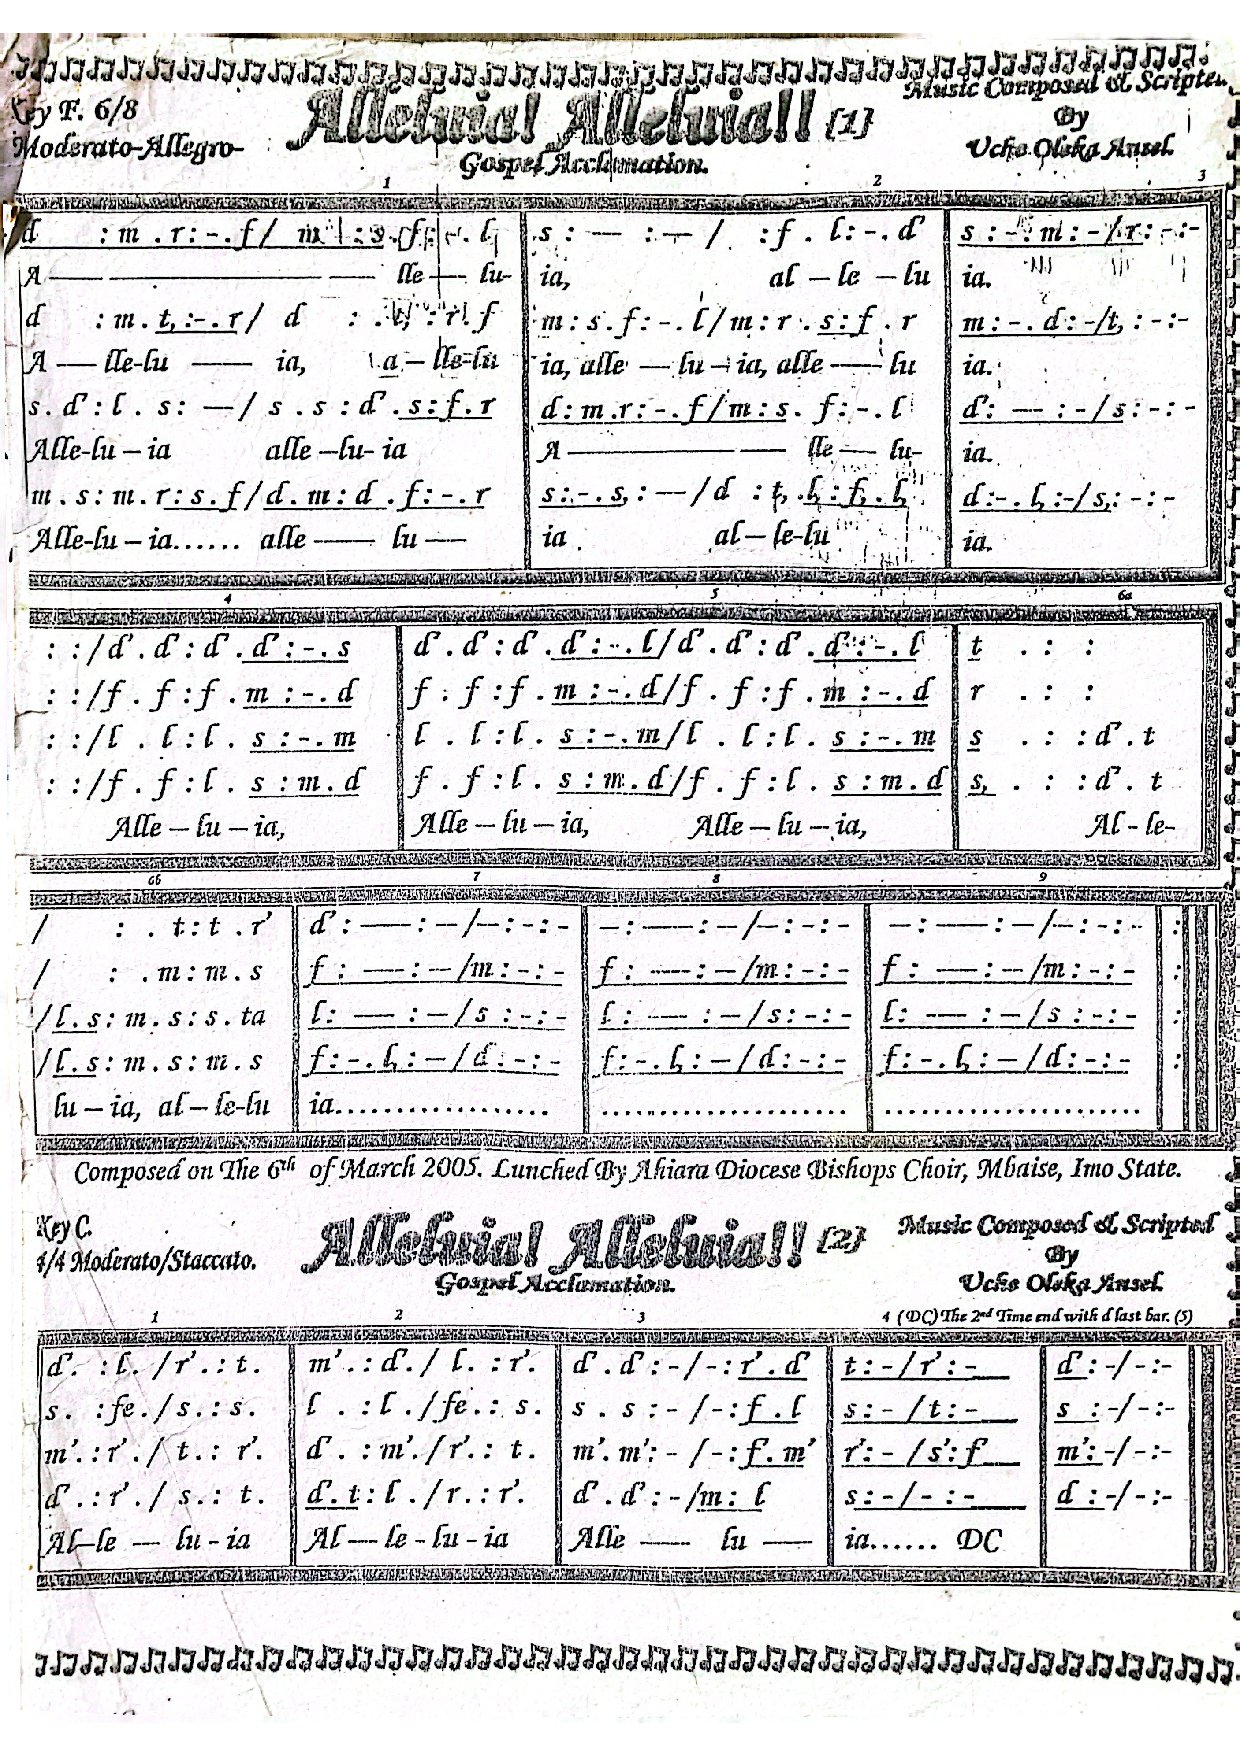 Key F. 6/8
Moderato-Allegro-
Alleluia! Alleluia!! {1}
Gospel Acclamation.
Music Composed & Scripted
By
Uche Olska Ansel.
1 2 3
d : m . r : - . f / m : s . f : - . l s : — : — / : f . l : - . d' s : - : m : - / r : - : -
A — lle — lu- ia, al – le – lu ia.
d : m . t, : - . r / d : . t, : r . f m : s . f : - . l / m : r . s : f . r m : - . d : - / t, : - : -
A — lle-lu — ia, a – lle-lu ia, alle — lu – ia, alle — lu ia.
s . d' : l . s : — / s . s : d' . s : f . r d : m . r : - . f / m : s . f : - . l d' : — : - / s : - : -
Alle-lu – ia alle –lu- ia A — lle — lu- ia.
m . s : m . r : s . f / d . m : d . f : - . r s : - . s, : — / d : t, . l, : f, . l, d : - . l, : - / s, : - : -
Alle-lu – ia...... alle — lu — ia al – le-lu ia.
4 5 6a
: : / d' . d' : d' . d' : - . s d' . d' : d' . d' : - . l / d' . d' : d' . d' : - . l t . : :
: : / f . f : f . m : - . d f . f : f . m : - . d / f . f : f . m : - . d r . : :
: : / l . l : l . s : - . m l . l : l . s : - . m / l . l : l . s : - . m s . : : d' . t
: : / f . f : l . s : m . d f . f : l . s : m . d / f . f : l . s : m . d s, . : : d' . t
Alle – lu – ia, Alle – lu – ia, Alle – lu – ia, Al - le-
6b 7 8 9
/ : . t : t . r' d' : — : — / — : - : - — : — : — / — : - : - — : — : — / — : - : - :
/ : . m : m . s f : — : — / m : - : - f : — : — / m : - : - f : — : — / m : - : - :
/ l . s : m . s : s . ta l : — : — / s : - : - l : — : — / s : - : - l : — : — / s : - : - :
/ l . s : m . s : m . s f : - . l, : — / d : - : - f : - . l, : — / d : - : - f : - . l, : — / d : - : - :
lu – ia, al – le-lu ia.................. ...................... ......................
Composed on The 6th of March 2005. Lunched By Ahiara Diocese Bishops Choir, Mbaise, Imo State.
Key C.
4/4 Moderato/Staccato.
Alleluia! Alleluia!! {2}
Gospel Acclamation.
Music Composed & Scripted
By
Uche Olska Ansel.
1 2 3 4 (DC) The 2nd Time end with d last bar. (5)
d' . : l . / r' . : t . m' . : d' . / l . : r' . d' . d' : - / - : r' . d' t : - / r' : - d' : - / - : -
s . : fe . / s . : s . l . : l . / fe . : s . s . s : - / - : f . l s : - / t : - s : - / - : -
m' . : r' . / t . : r' . d' . : m' . / r' . : t . m' . m' : - / - : f' . m' r' : - / s' : f' m' : - / - : -
d' . : r' . / s . : t . d' . t : l . / r . : r' . d' . d' : - / m : l s : - / - : - d : - / - : -
Al–le — lu - ia Al — le - lu - ia Alle — lu — ia...... DC